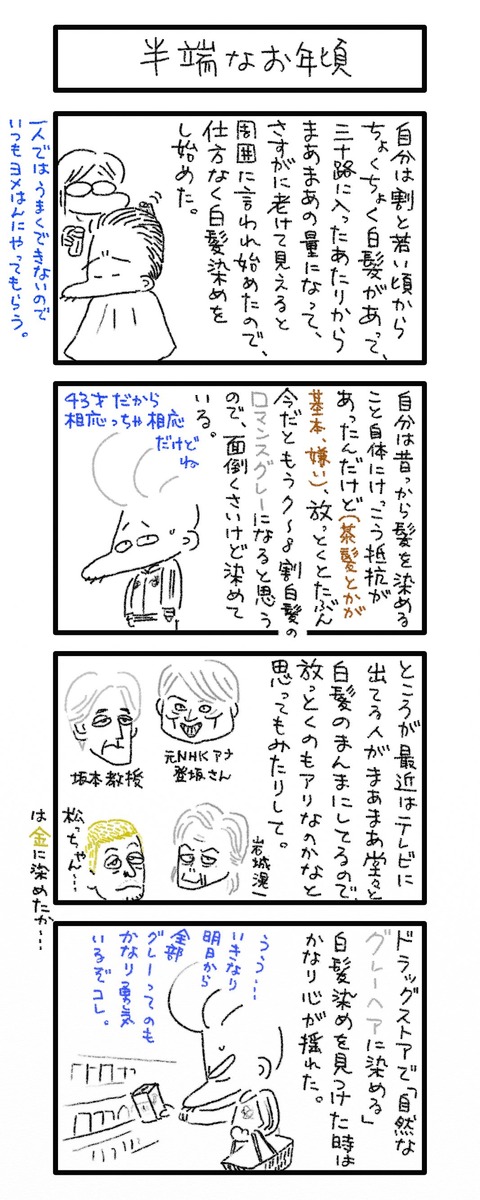 半端なお年頃
自分は割と若い頃から
ちょくちょく白髪があって、
三十路に入ったあたりから
まあまあの量になって、
さすがに老けて見えると
周囲に言われ始めたので、
仕方なく白髪染めを
し始めた。
一人ではうまくできないので
いつもヨメはんにやってもらう。
自分は昔っから髪を染める
こと自体にけっこう抵抗が
あったんだけど(茶髪とかが
基本、嫌い)、放っとくとたぶん
今だともう7〜8割白髪の
ロマンスグレーになると思う
ので、面倒くさいけど染めて
いる。
43才だから
相応っちゃ相応
だけど
ね
ところが最近はテレビに
出てる人がまあまあ堂々と
白髪のまんまにしてるので、
放っとくのもアリなのかなと
思ってもみたりして。
元NHKアナ
登坂さん
坂本教授
岩城滉一
松っちゃん…
は金に染めたか…
ドラッグストアで「自然な
グレーヘアに染める」
白髪染めを見つけた時は
かなり心が揺れた。
うう…
いきなり
明日から
全部
グレーってのも
かなり勇気
いるぞコレ。